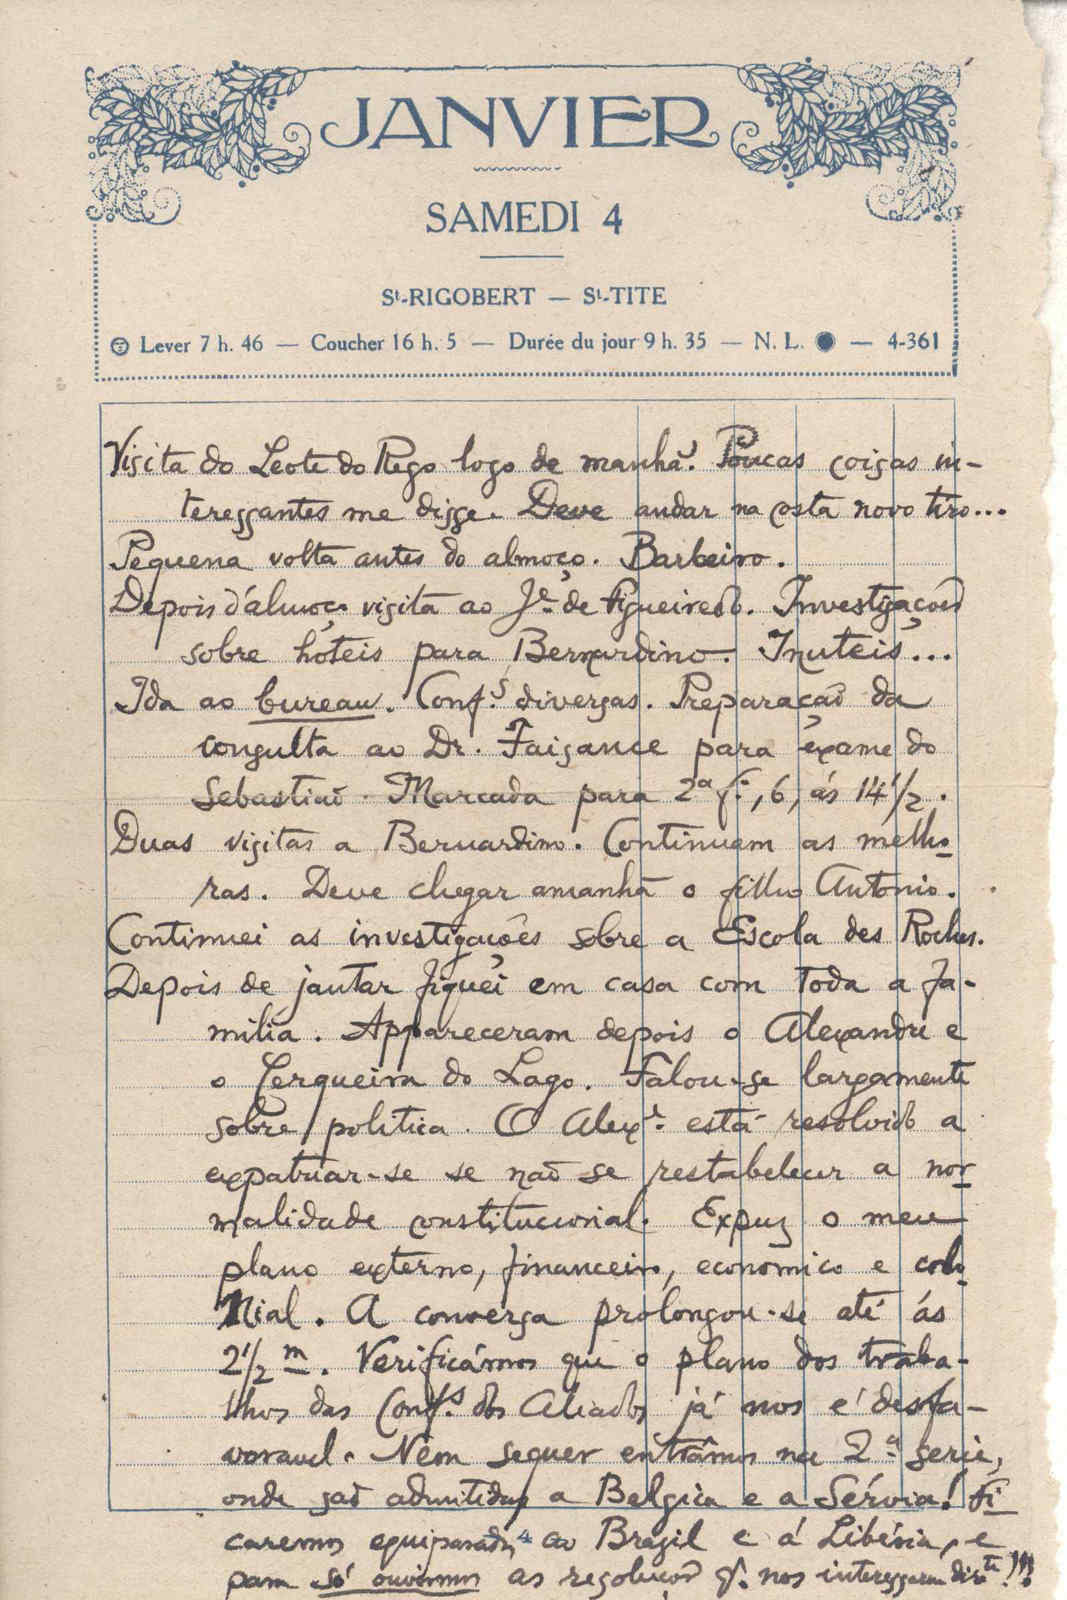 JANVIER
SAMEDI 4
St-RIGOBERT — St-TITE
Lever 7 h. 46 — Coucher 16 h. 5 — Durée du jour 9 h. 35 — N. L. ● — 4-361
Visita do Leote do Rego logo de manhã. Poucas coisas in-
teressantes me disse. Deve andar na costa novo tiro...
Pequena volta antes do almoço. Barbeiro.
Depois d'almoço visita ao Jé. de Figueiredo. Investigações
sobre hóteis para Bernardino. Inuteis...
Ida ao bureau. Conf.s diversas. Preparação da
consulta ao Dr. Faisance para exame do
Sebastião. Marcada para 2a f.a, 6, ás 14 1/2.
Duas visitas a Bernardino. Continuam as melho-
ras. Deve chegar amanhã o filho Antonio.
Continuei as investigações sobre a Escola des Roches.
Depois de jantar fiquei em casa com toda a fa-
milia. Appareceram depois o Alexandre e
o Cerqueira do Lago. Falou-se largamente
sobre politica. O Alex.e está resolvido a
expatriar-se se não se restabelecer a nor-
malidade constitucional. Expuz o meu
plano externo, financeiro, economico e colo-
nial. A conversa prolongou-se até ás
2 1/2 m. Verificámos que o plano dos traba-
lhos das Conf.s dos Aliados já nos é desfa-
voravel. Nem sequer entrâmos na 2.a serie,
onde são admitidas a Belgica e a Sérvia! Fi-
caremos equiparados ao Brazil e á Libéria, e
para só ouvirmos as resoluções q. nos interessarem dir.te!!!